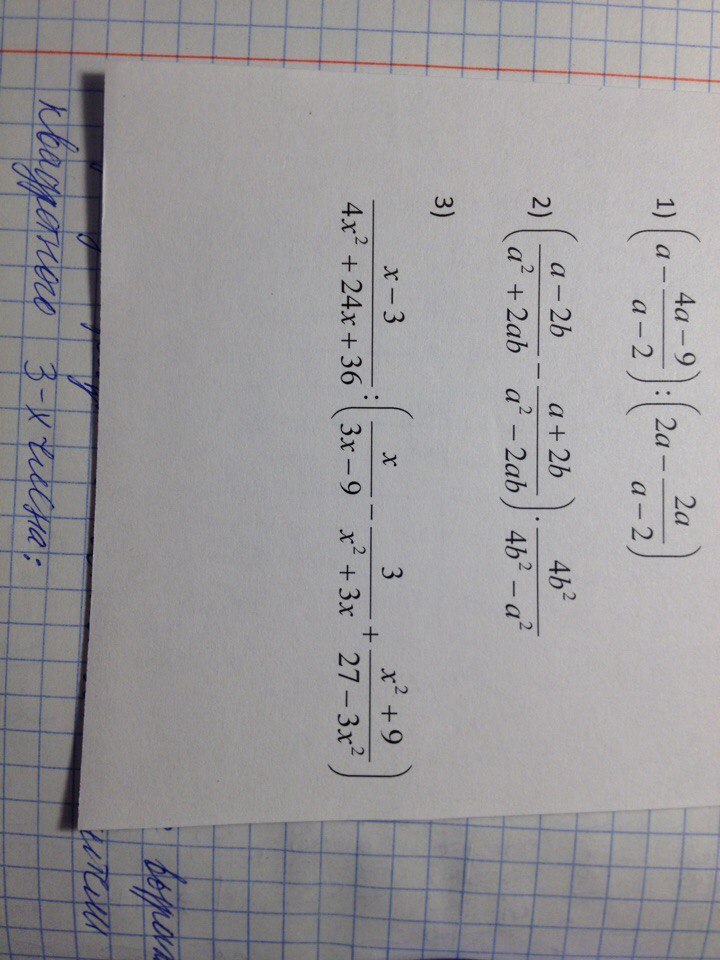 1) (a − (4a − 9)/(a − 2)) : (2a − 2a/(a − 2))
2) ((a − 2b)/(a² + 2ab) − (a + 2b)/(a² − 2ab)) · 4b²/(4b² − a²)
3)
(x − 3)/(4x² + 24x + 36) : (x/(3x − 9) − 3/(x² + 3x) + (x² + 9)/(27 − 3x²))
квадратного 3-х члена: